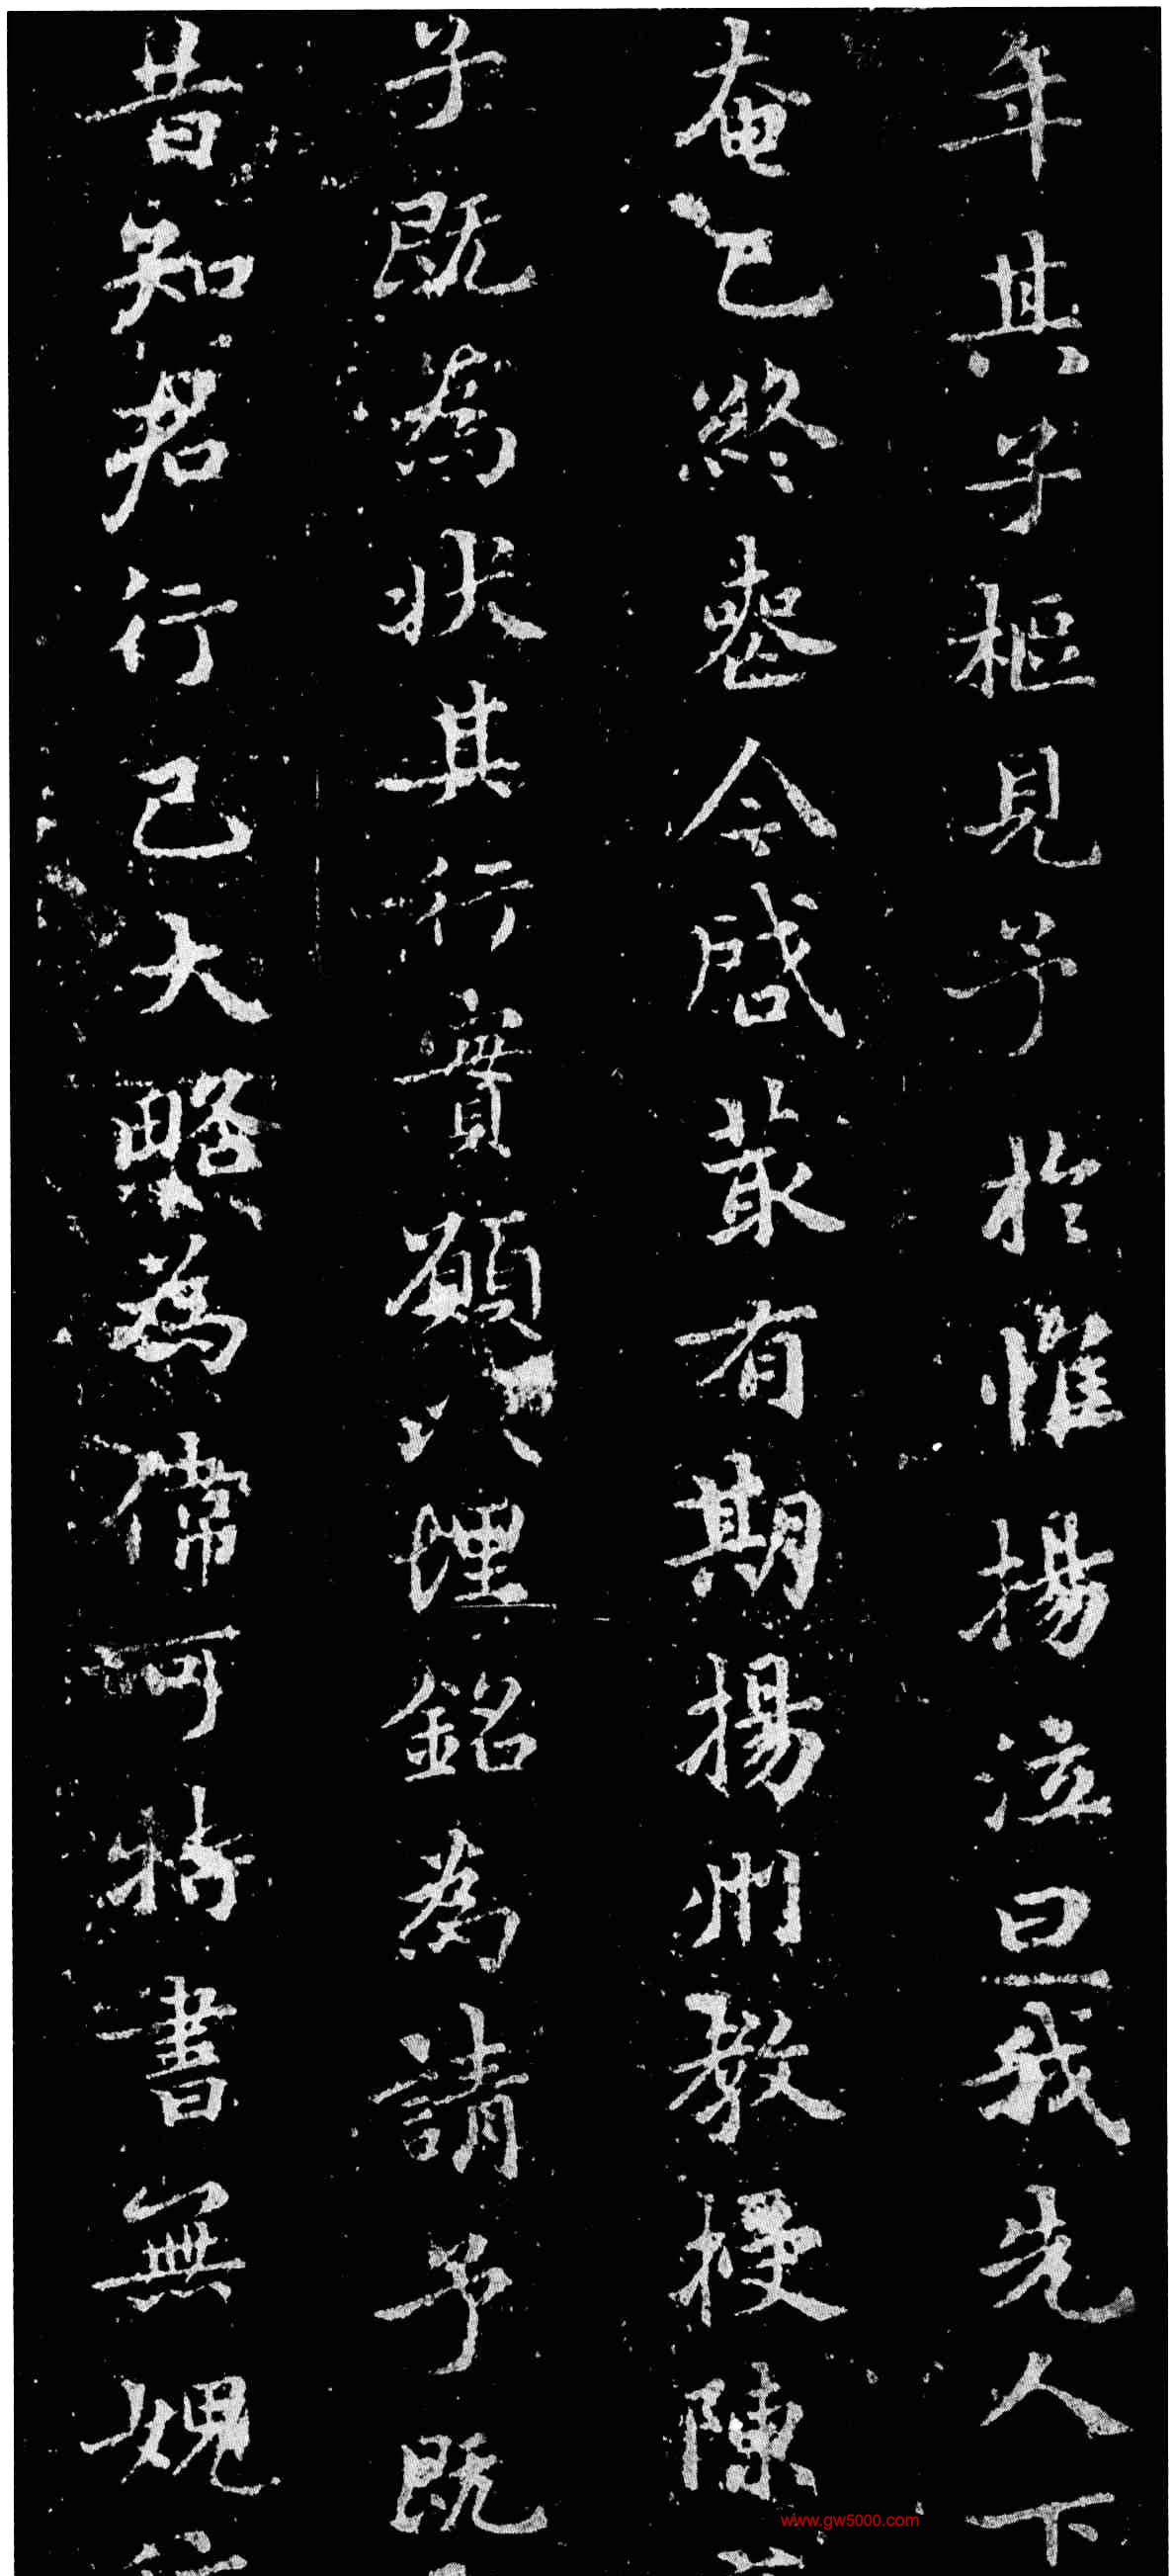 年其子樞見予於惟揚泣曰我先人下
奄已終塟今啓菆有期揚州教授陳
子既為狀其行實願以埋銘為請予既
昔知君行己大略為偉可特書無媿
www.gw5000.com